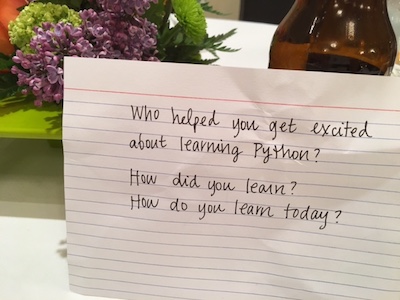 Who helped you get excited
about learning Python?
How did you learn?
How do you learn today?